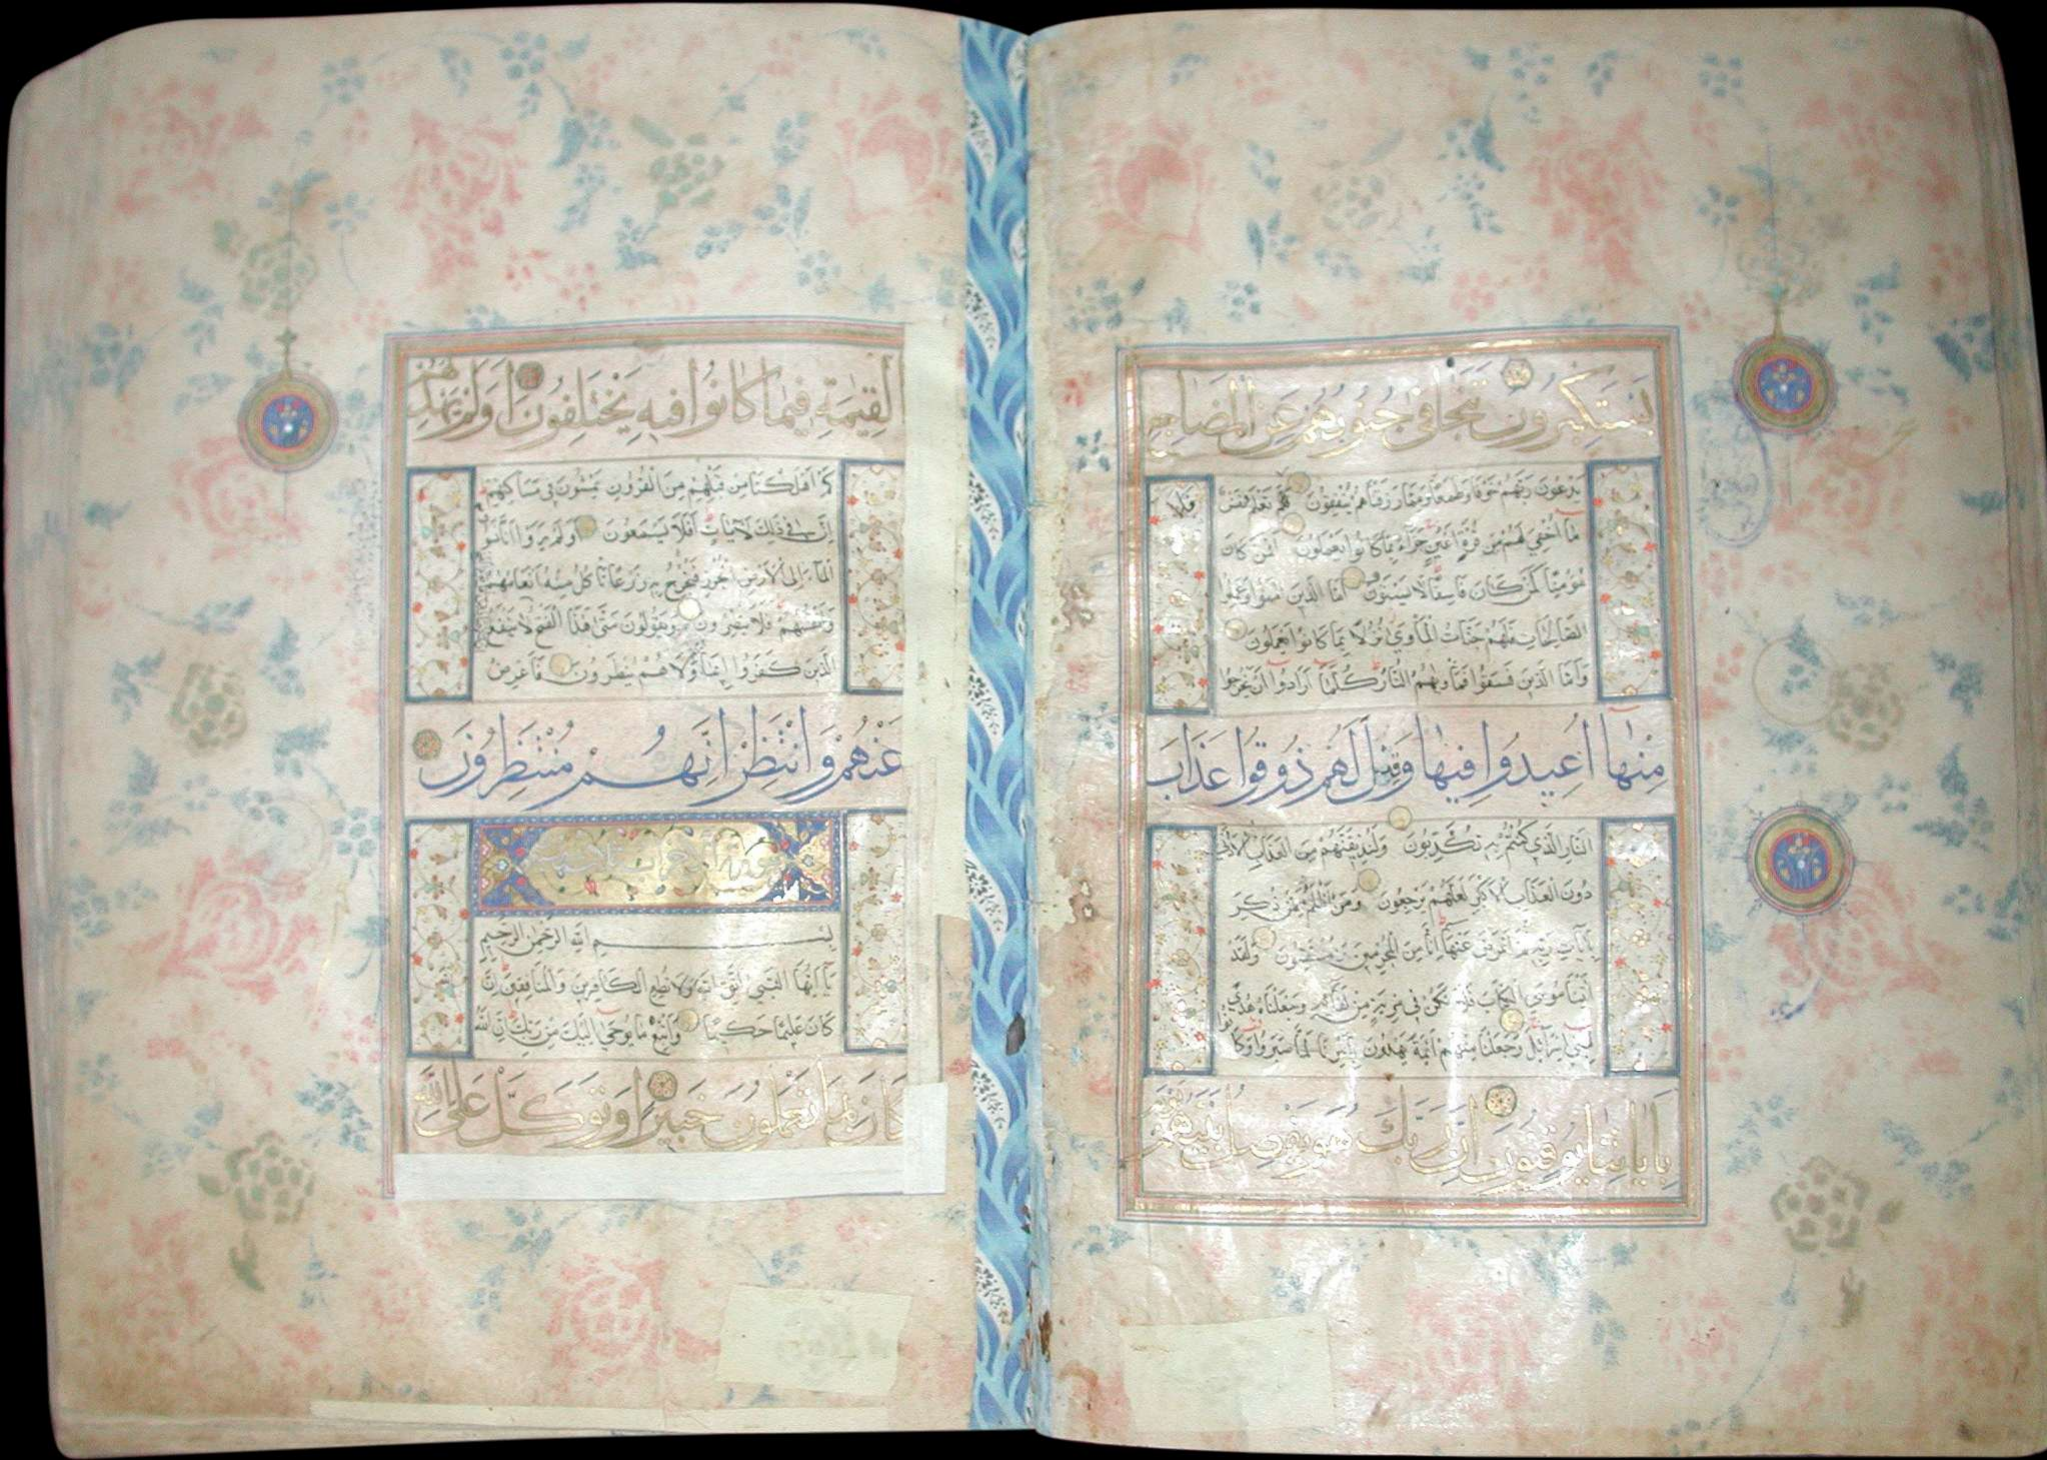 يستكبرون تتجافى جنوبهم عن المضاجع
يدعون ربهم خوفا وطمعا ومما رزقناهم ينفقون فلا تعلم نفس
ما أخفي لهم من قرة أعين جزاء بما كانوا يعملون افمن كان
مؤمنا كمن كان فاسقا لا يستون اما الذين امنوا وعملوا
الصالحات فلهم جنات المأوى نزلا بما كانوا يعملون
وأما الذين فسقوا فمأويهم النار كلما ارادوا ان يخرجوا
منها أعيدوا فيها وقيل لهم ذوقوا عذاب
النار الذي كنتم به تكذبون ولنذيقنهم من العذاب الادنى
دون العذاب الاكبر لعلهم يرجعون ومن أظلم ممن ذكر
بايات ربه ثم اعرض عنها إنا من المجرمين منتقمون ولقد
آتينا موسى الكتاب فلا تكن في مرية من لقائه وجعلناه هدى
لبني اسرائيل وجعلنا منهم أئمة يهدون بأمرنا لما صبروا وكانوا
باياتنا يوقنون ان ربك هو يفصل بينهم
القيمة فيما كانوا فيه يختلفون اولم يهد لهم
كم اهلكنا من قبلهم من القرون يمشون في مساكنهم
إن في ذلك لايات أفلا يسمعون اولم يروا انا نسوق
الماء إلى الأرض الجرز فنخرج به زرعا تأكل منه انعامهم
وانفسهم افلا يبصرون ويقولون متى هذا الفتح لا ينفع
الذين كفروا إيمانهم ولا هم ينظرون فاعرض
عنهم وانتظر إنهم منتظرون
بسم الله الرحمن الرحيم
يآ ايها النبي اتق الله ولا تطع الكافرين والمنافقين إن
كان عليما حكيما واتبع ما يوحى إليك من ربك إن الله
كان بما تعملون خبيرا وتوكل على الله